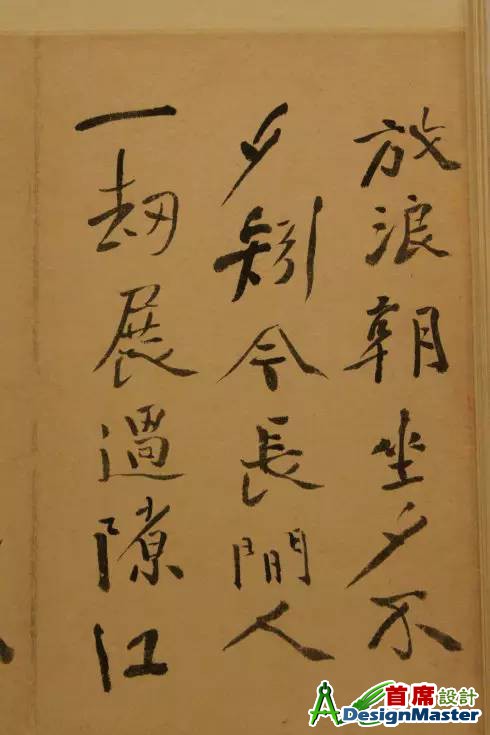 放浪朝坐夕不
夕矧今長閒人
一劫展過隙江
首席設計
DesignMaster